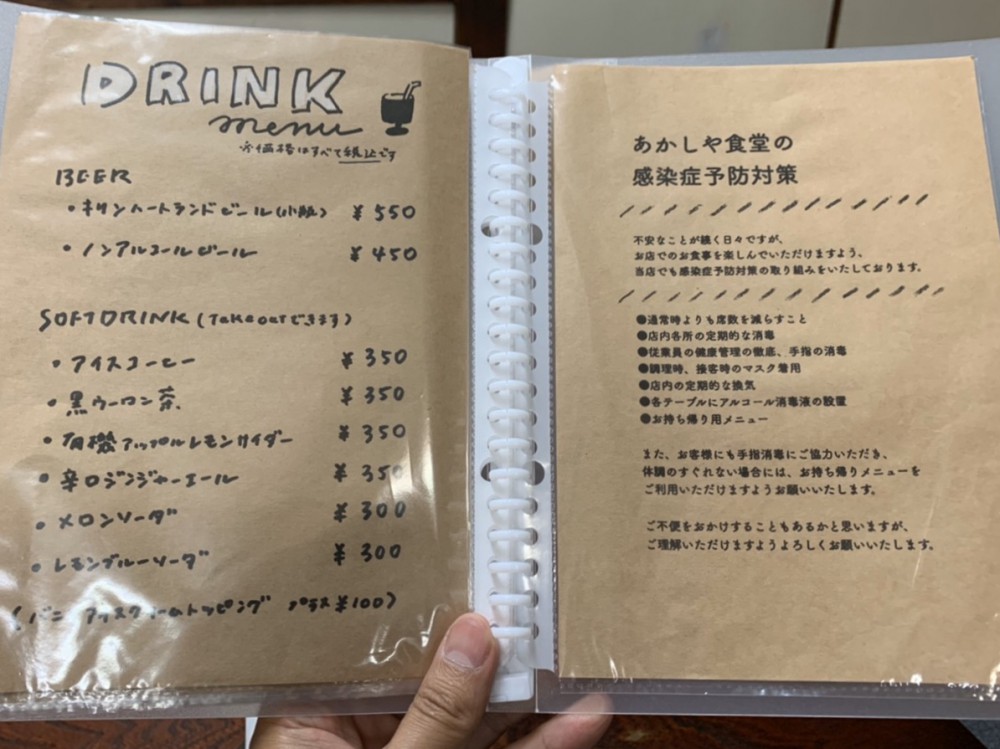 DRINK
menu
※価格はすべて税込です
BEER
・キリンハートランドビール(小瓶) ¥550
・ノンアルコールビール ¥450
SOFTDRINK (Takeoutできます)
・アイスコーヒー ¥350
・黒ウーロン茶 ¥350
・有機アップルレモンサイダー ¥350
・辛口ジンジャーエール ¥350
・メロンソーダ ¥300
・レモンブルーソーダ ¥300
プラス¥100)
あかしや食堂の
感染症予防対策
不安なことが続く日々ですが、
お店でのお食事を楽しんでいただけますよう、
当店でも感染症予防対策の取り組みをいたしております。
●通常時よりも席数を減らすこと
●店内各所の定期的な消毒
●従業員の健康管理の徹底、手指の消毒
●調理時、接客時のマスク着用
●店内の定期的な換気
●各テーブルにアルコール消毒液の設置
●お持ち帰り用メニュー
また、お客様にも手指消毒にご協力いただき、
体調のすぐれない場合には、お持ち帰りメニューを
ご利用いただけますようお願いいたします。
ご不便をおかけすることもあるかと思いますが、
ご理解いただけますようよろしくお願いいたします。